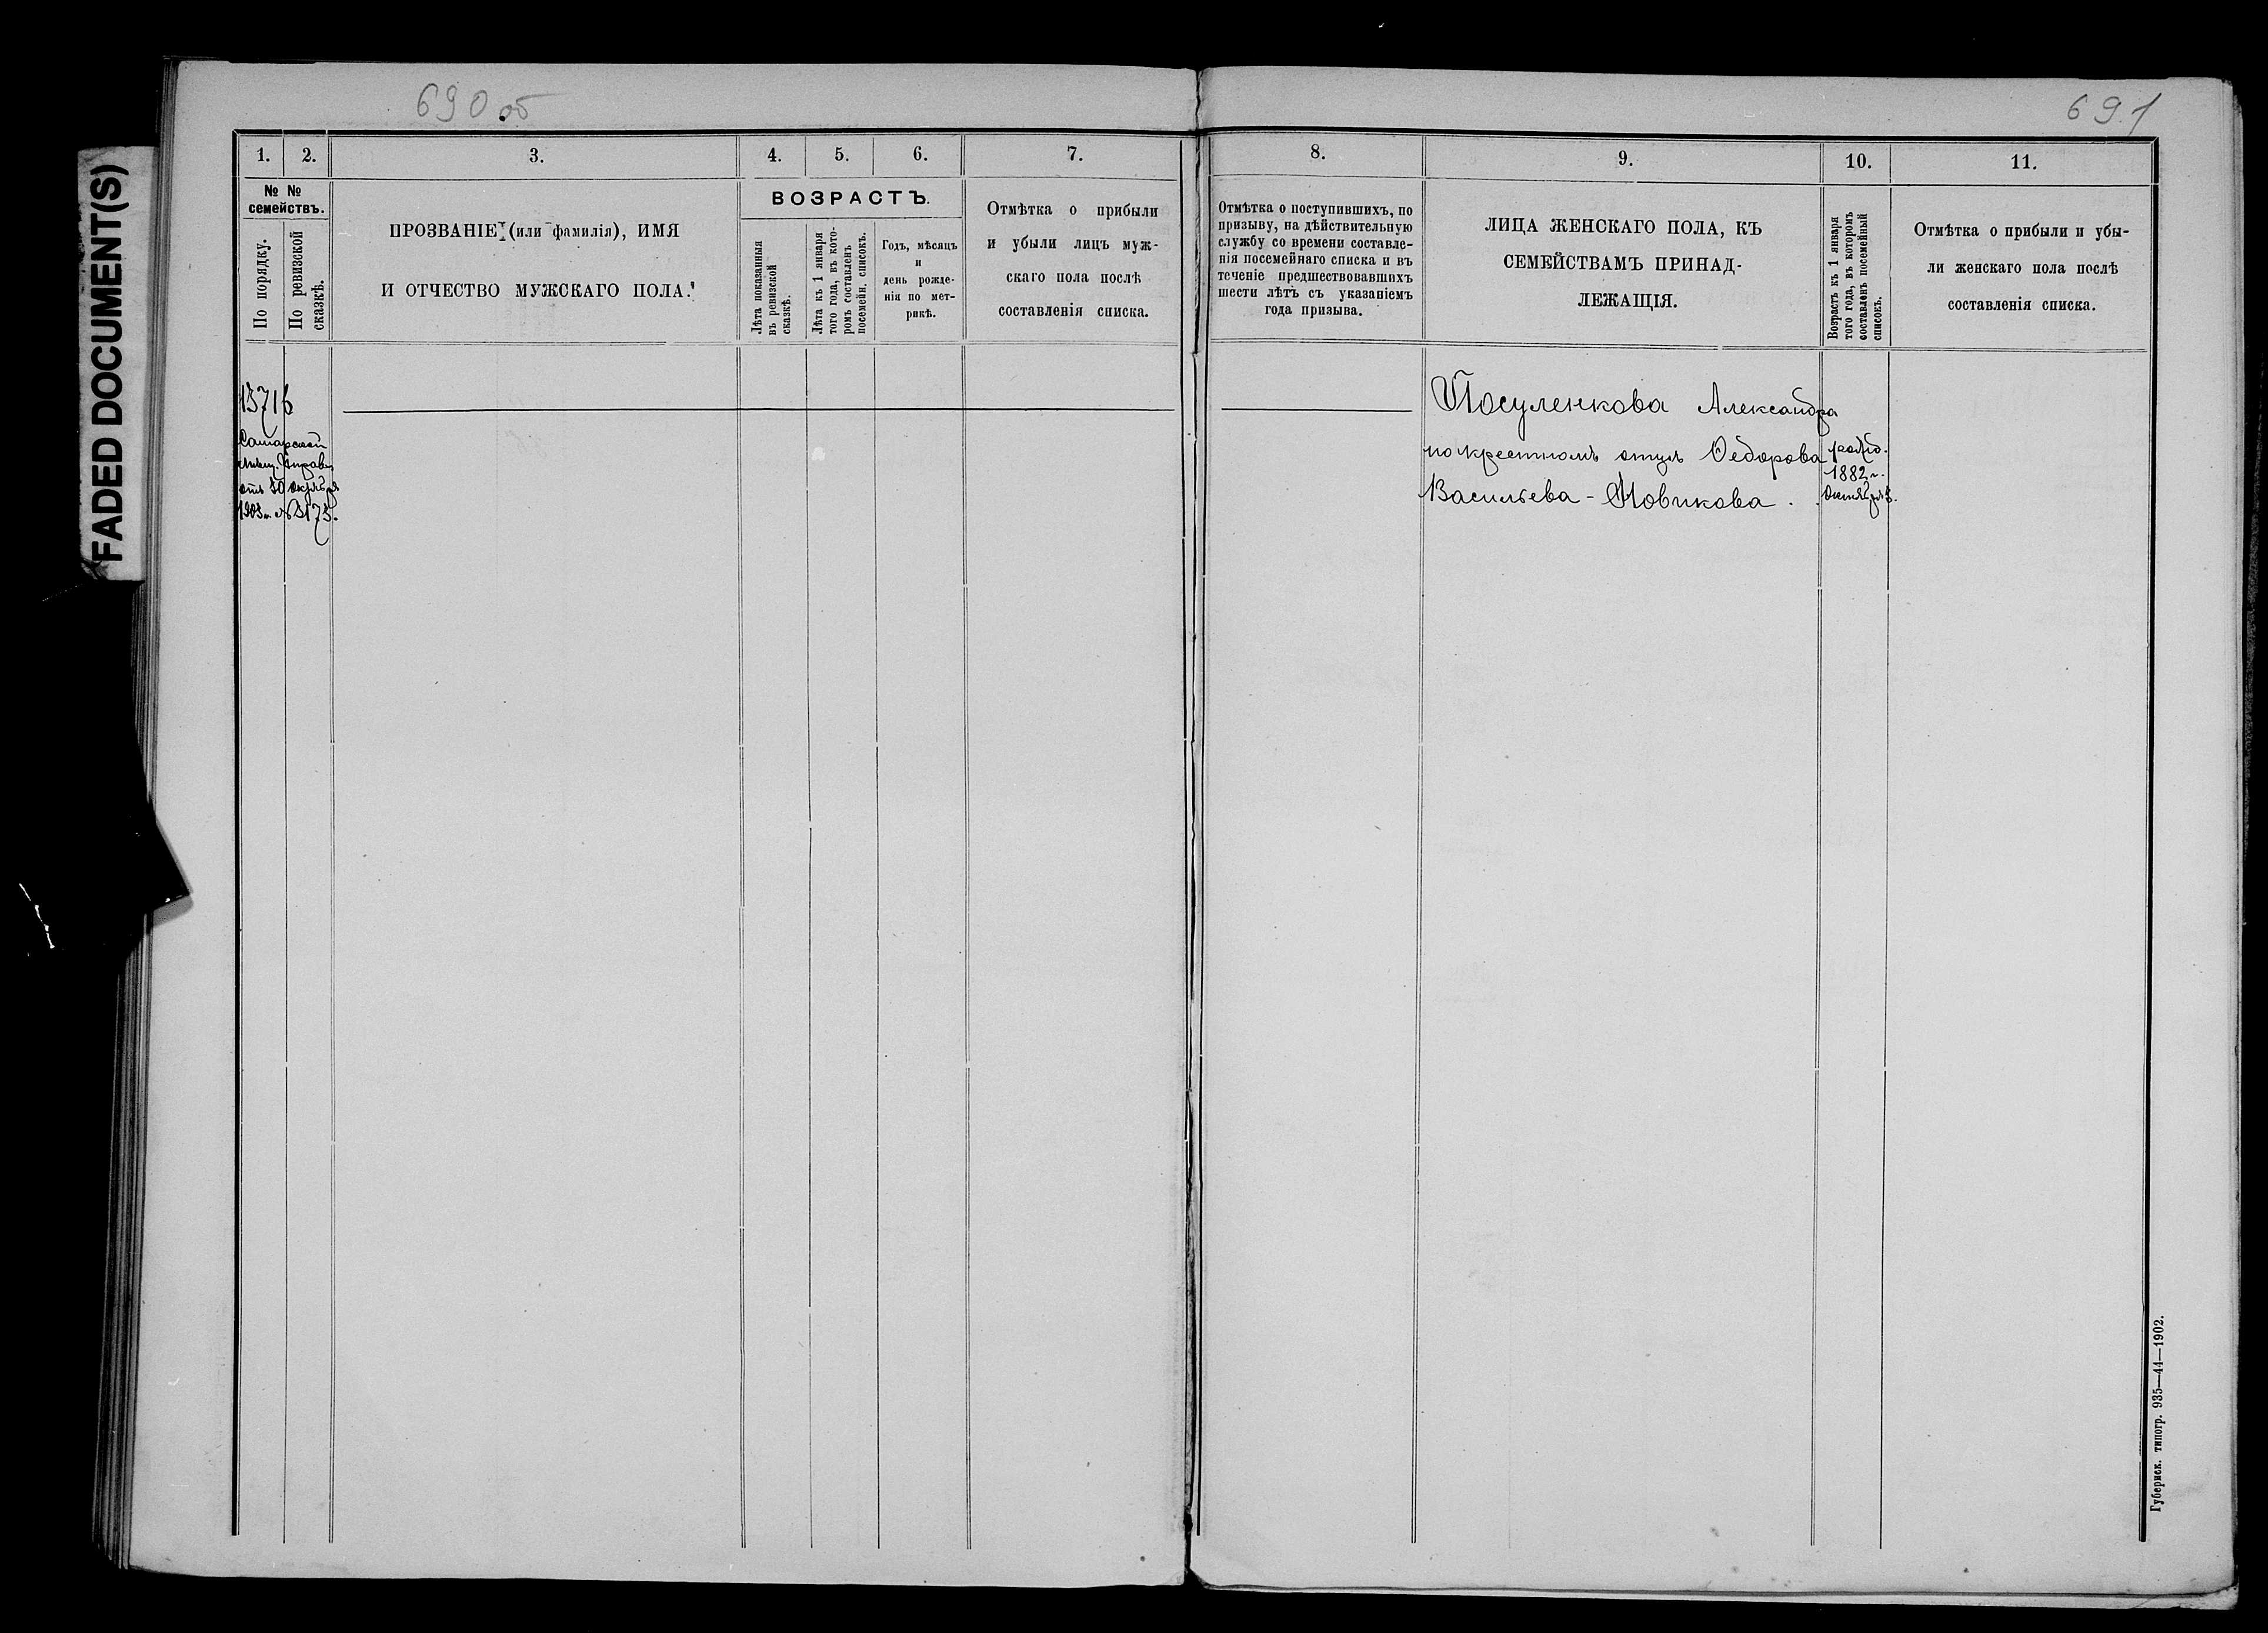 FADED DOCUMENT(S)
690 об
691
1.
2.
3.
4.
5.
6.
7.
№ №
семействъ.
По порядку.
По ревизской
сказкѣ.
ПРОЗВАНІЕ (или фамилія), ИМЯ
И ОТЧЕСТВО МУЖСКАГО ПОЛА.
ВОЗРАСТЪ.
Лѣта показанныя
въ ревизской
сказкѣ.
Лѣта къ 1 января
того года, въ кото-
ромъ составленъ
посемейн. списокъ.
Годъ, мѣсяцъ
и
день рожде-
нія по мет-
рикѣ.
Отмѣтка о прибыли
и убыли лицъ муж-
скаго пола послѣ
составленія списка.
13716
Самарской
мѣщ. Управы
отъ 30 октября
1903 г. № 5173.
8.
9.
10.
11.
Отмѣтка о поступившихъ, по
призыву, на дѣйствительную
службу со времени составле-
нія посемейнаго списка и въ
теченіе предшествовавшихъ
шести лѣтъ съ указаніемъ
года призыва.
ЛИЦА ЖЕНСКАГО ПОЛА, КЪ
СЕМЕЙСТВАМЪ ПРИНАД-
ЛЕЖАЩІЯ.
Возрастъ къ 1 января
того года, въ которомъ
составленъ посемейный
списокъ.
Отмѣтка о прибыли и убы-
ли женскаго пола послѣ
составленія списка.
Посуленкова Александра
по крестномъ отцѣ Ѳедорова
Васильева-Новикова.
1882 г.
Губернск. типогр. 935—44—1902.